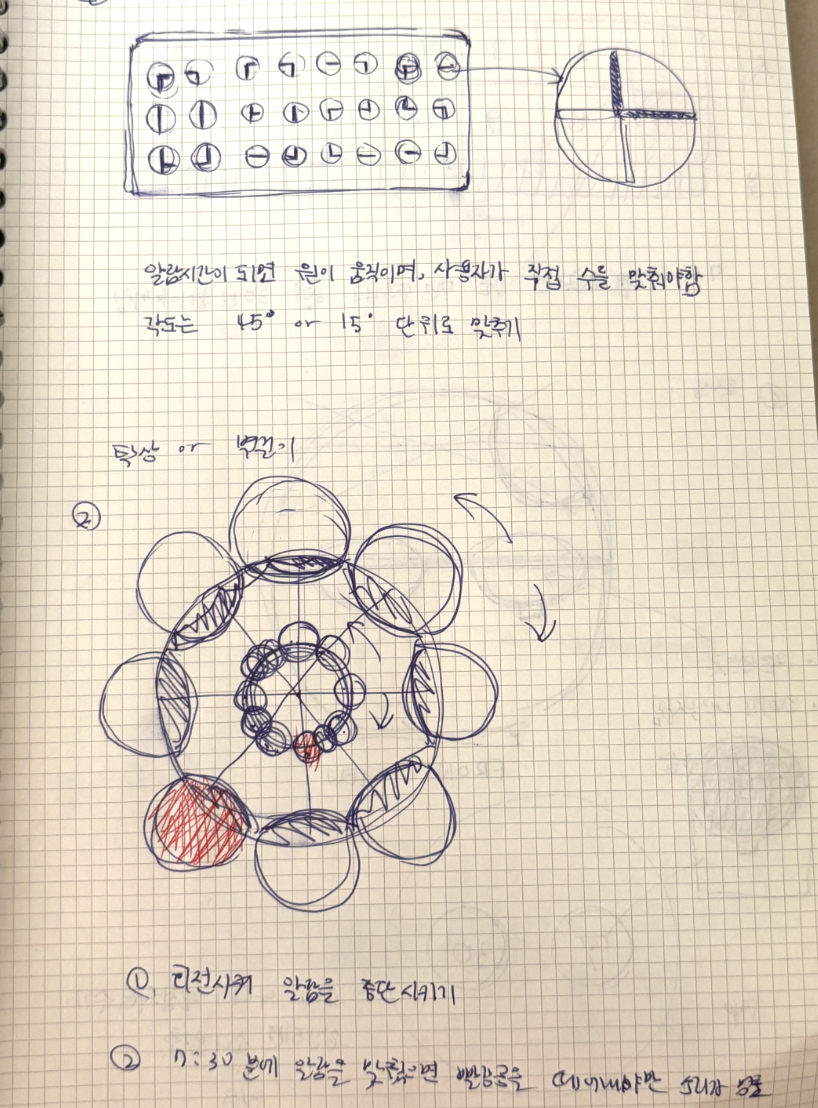 알람시간이 되면 원이 움직이며, 사용자가 직접 수를 맞춰야함
각도는 45° or 15° 단위로 맞추기
탁상 or 벽걸이
②
①. 회전시켜 알람을 중단시키기
② 7:30 분에 알람을 맞췄으면 빨강공을 떼어내야만 소리가 멈춤